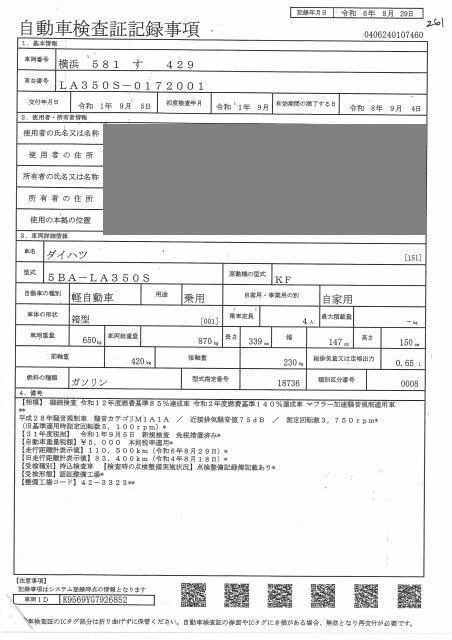 記録年月日 令和 6年 8月 29日
261
自動車検査証記録事項
0406240107460
1．基本情報
車両番号 横浜 581 す 429
車台番号 LA350S-0172001
交付年月日 令和 1年 9月 5日 初度検査年月 令和 1年 9月 有効期間の満了する日 令和 8年 9月 4日
2．使用者・所有者情報
使用者の氏名又は名称
使用者の住所
所有者の氏名又は名称
所有者の住所
使用の本拠の位置
3．車両詳細情報
車名 ダイハツ [151]
型式 5BA-LA350S 原動機の型式 KF
自動車の種別 軽自動車 用途 乗用 自家用・事業用の別 自家用
車体の形状 箱型 [001] 乗車定員 4人 最大積載量 -kg
車両重量 650kg 車両総重量 870kg 長さ 339cm 幅 147cm 高さ 150cm
前軸重 420kg 後軸重 230kg 総排気量又は定格出力 0.65 L
燃料の種類 ガソリン 型式指定番号 18736 類別区分番号 0008
4．備考
【相模】 継続検査 令和12年度燃費基準85％達成車 令和2年度燃費基準140％達成車 マフラー加速騒音規制適用車
**
平成28年騒音規制車 騒音カテゴリM1A1A ／ 近接排気騒音値75dB ／ 測定回転数3，750rpm*
(旧基準適用時測定回転数5，100rpm)*
【31年度税制】 令和1年9月5日 新規検査 免税措置済み*
【自動車重量税額】￥5，000 本則税率適用*
【走行距離計表示値】110，500km（令和6年8月29日）*
【旧走行距離計表示値】83，400km（令和4年8月18日）*
【受検種別】持込検査車 【検査時の点検整備実施状況】点検整備記録簿記載あり*
【受検形態】認証整備工場*
【整備工場コード】42-3323**
【注意事項】
記録事項はシステム登録時点の情報となります
車両ID K9569YG7926852
車検査証のICタグ部分は折り曲げずに保管ください。自動車検査証の券面やICタグにき損がある場合、無効となり再交付が必要です。